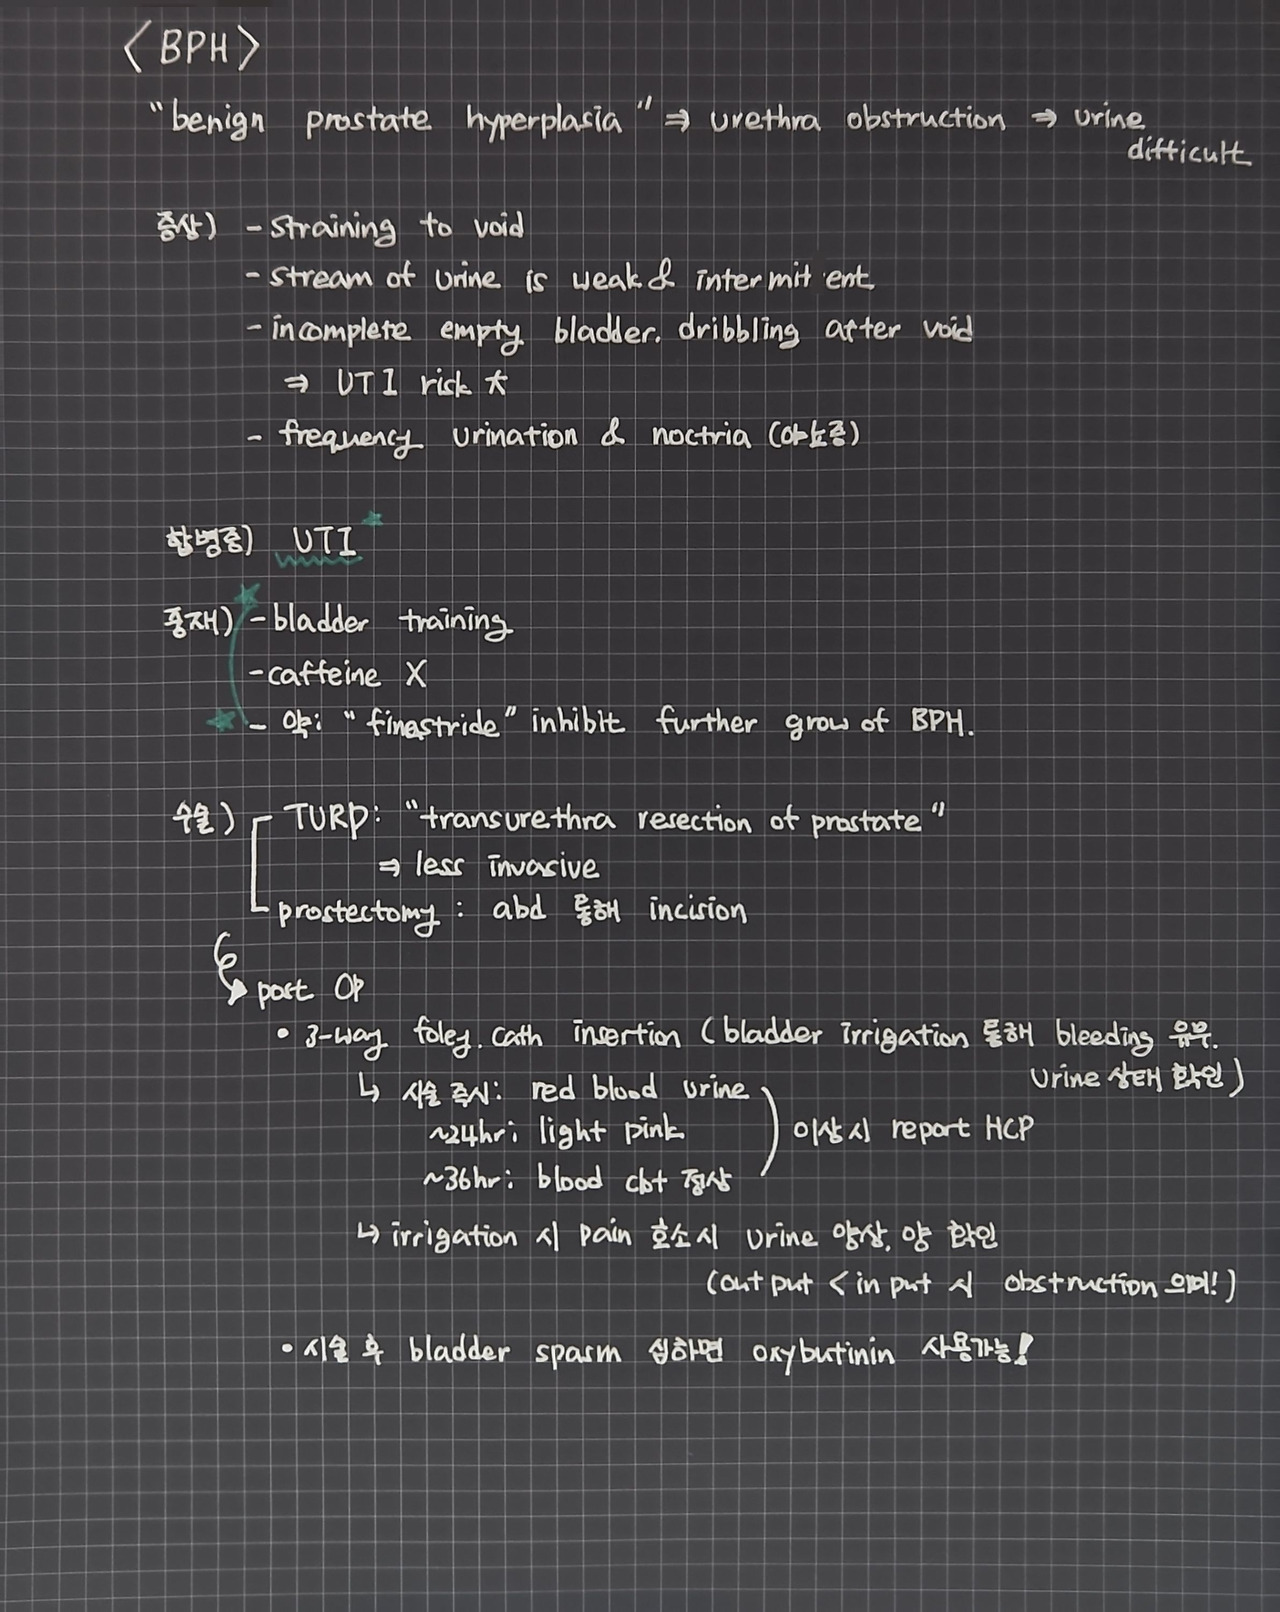 <BPH>
"benign prostate hyperplasia" ⇒ urethra obstruction ⇒ urine
difficult
증상) - straining to void
- stream of urine is weak & intermit ent
- incomplete empty bladder. dribbling after void
⇒ UTI risk 大
- frequency urination & noctria (야뇨증)
합병증) UTI
중재) - bladder training
- caffeine X
- 약: "finastride" inhibit further grow of BPH.
수술) TURP: "transurethra resection of prostate"
⇒ less invasive
prostectomy : abd 통해 incision
post OP
• 3-way foley. cath insertion (bladder irrigation 통해 bleeding 유무.
urine 상태 확인)
↳ 시술 즉시: red blood urine
~24hr: light pink
이상 시 report HCP
~36hr: blood clot 정상
↳ irrigation 시 pain 호소 시 urine 양상, 양 확인
(out put < in put 시 obstruction 의미!)
• 시술 후 bladder spasm 심하면 oxybutinin 사용가능!